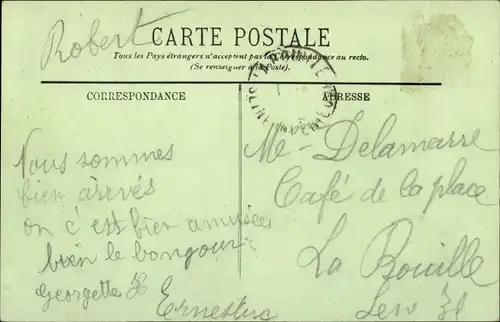 Robert
CARTE POSTALE
Tous les Pays étrangers n'acceptent pas la Correspondance au recto.
(Se renseigner à la Poste).
CORRESPONDANCE
ADRESSE
Nous sommes
bien arivés
on c est bien amusées
bien le bongour
Georgette
Ernestine
Me - Delamarre
Café de la place
La Bouille